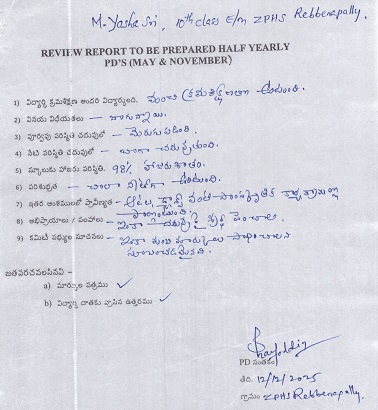 M. Yasha Sri, 10th class E/m ZPHS Rebbenapally.
REVIEW REPORT TO BE PREPARED HALF YEARLY
PD'S (MAY & NOVEMBER)
1) విద్యార్థి క్రమశిక్షణ అందరి విద్యార్థులది. మంచి క్రమశిక్షణతో ఉంటుంది.
2) వినయ విధేయతలు – బాగున్నాయి.
3) పూర్వపు పరిస్థితి చదువులో – మెరుగుపడింది.
4) నేటి పరిస్థితి చదువులో – బాగా చదువుతుంది.
5) స్కూలుకు హాజరు పరిస్థితి. 98% హాజరుశాతం.
6) పరిశుభ్రత – చాలా నీట్‌గా ఉంటుంది.
7) ఇతర అంశములలో ప్రావీణ్యత – ఆటల, వంటి సాంస్కృతిక
పాల్గొంటుంది.
8) అభిప్రాయాలు / సలహాలు – ఇంకా చదువు పై పెంచాలి.
9) కమిటీ సభ్యుల సూచనలు – ఇంకా మంచి మార్కులు సాధించాలని
సూచించడమైనది.
జతపరచవలసినవి -
a) మార్కుల పత్రము ✓
b) విద్యార్థి దాతకు వ్రాసిన ఉత్తరము ✓
PD సంతకం
తేది. 12/12/2025
గ్రామం ZPHS Rebbenapally.